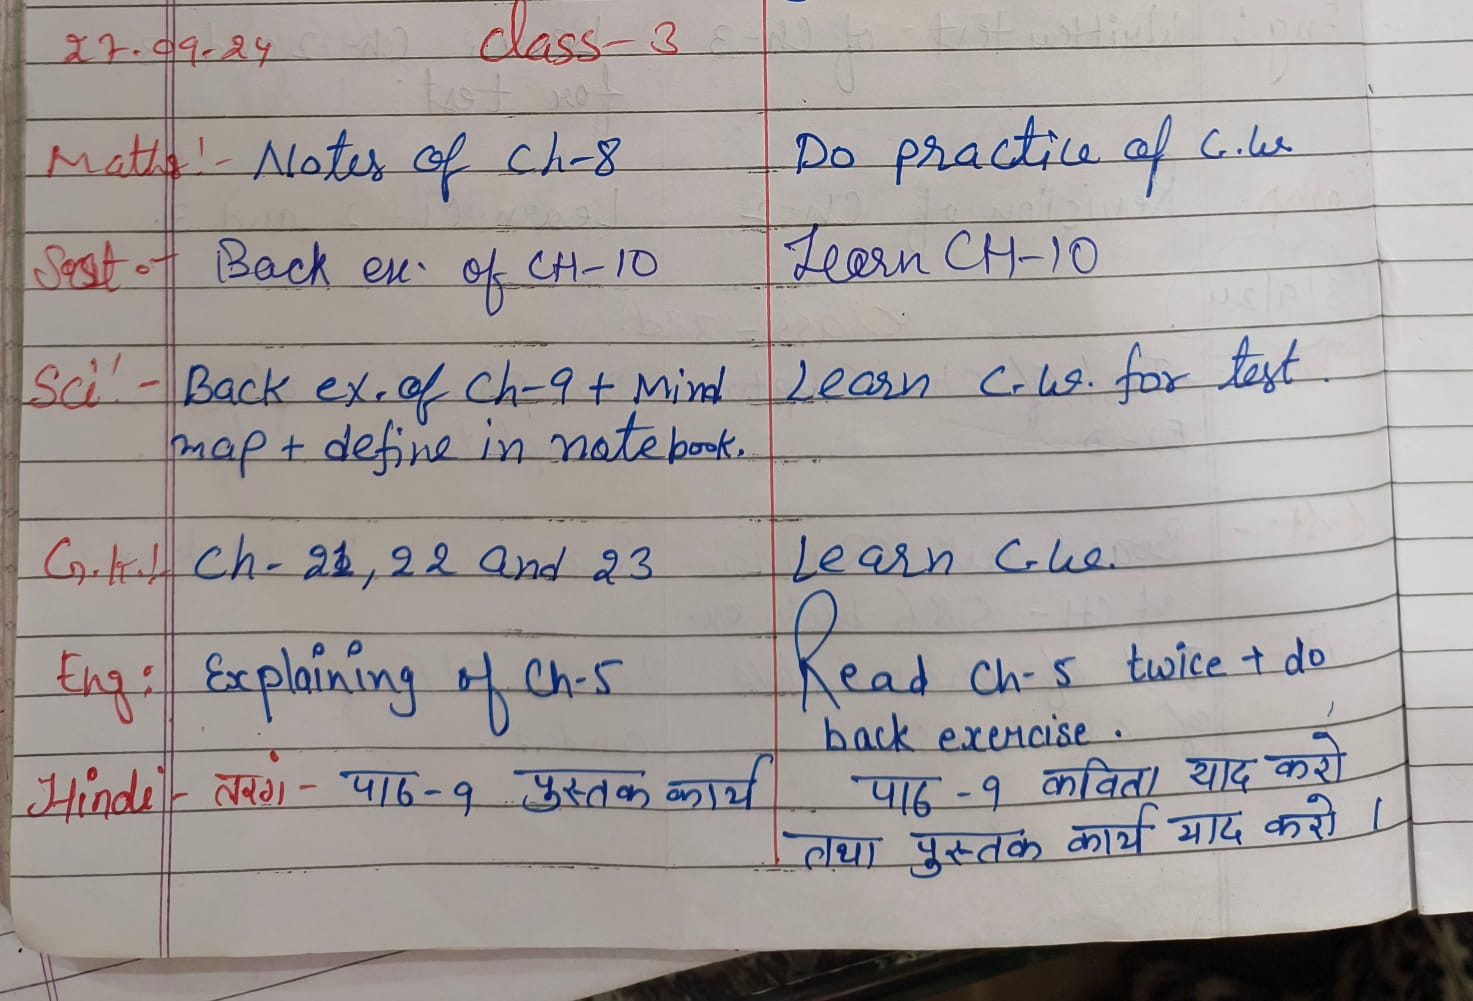 27.09.24 class-3
Maths:- Notes of Ch-8 Do practice of C.W
Sst Back ex. of CH-10 Learn CH-10
Sci:- Back ex. of Ch-9 + Mind Learn C.W. for test.
map + define in notebook.
G.K.:- Ch- 21, 22 and 23 Learn C.W.
Eng: Explaining of Ch-5 Read Ch-5 twice + do
back exercise.
Hindi- तरंग- पाठ-9 पुस्तक कार्य पाठ-9 कविता याद करो
तथा पुस्तक कार्य याद करो ।